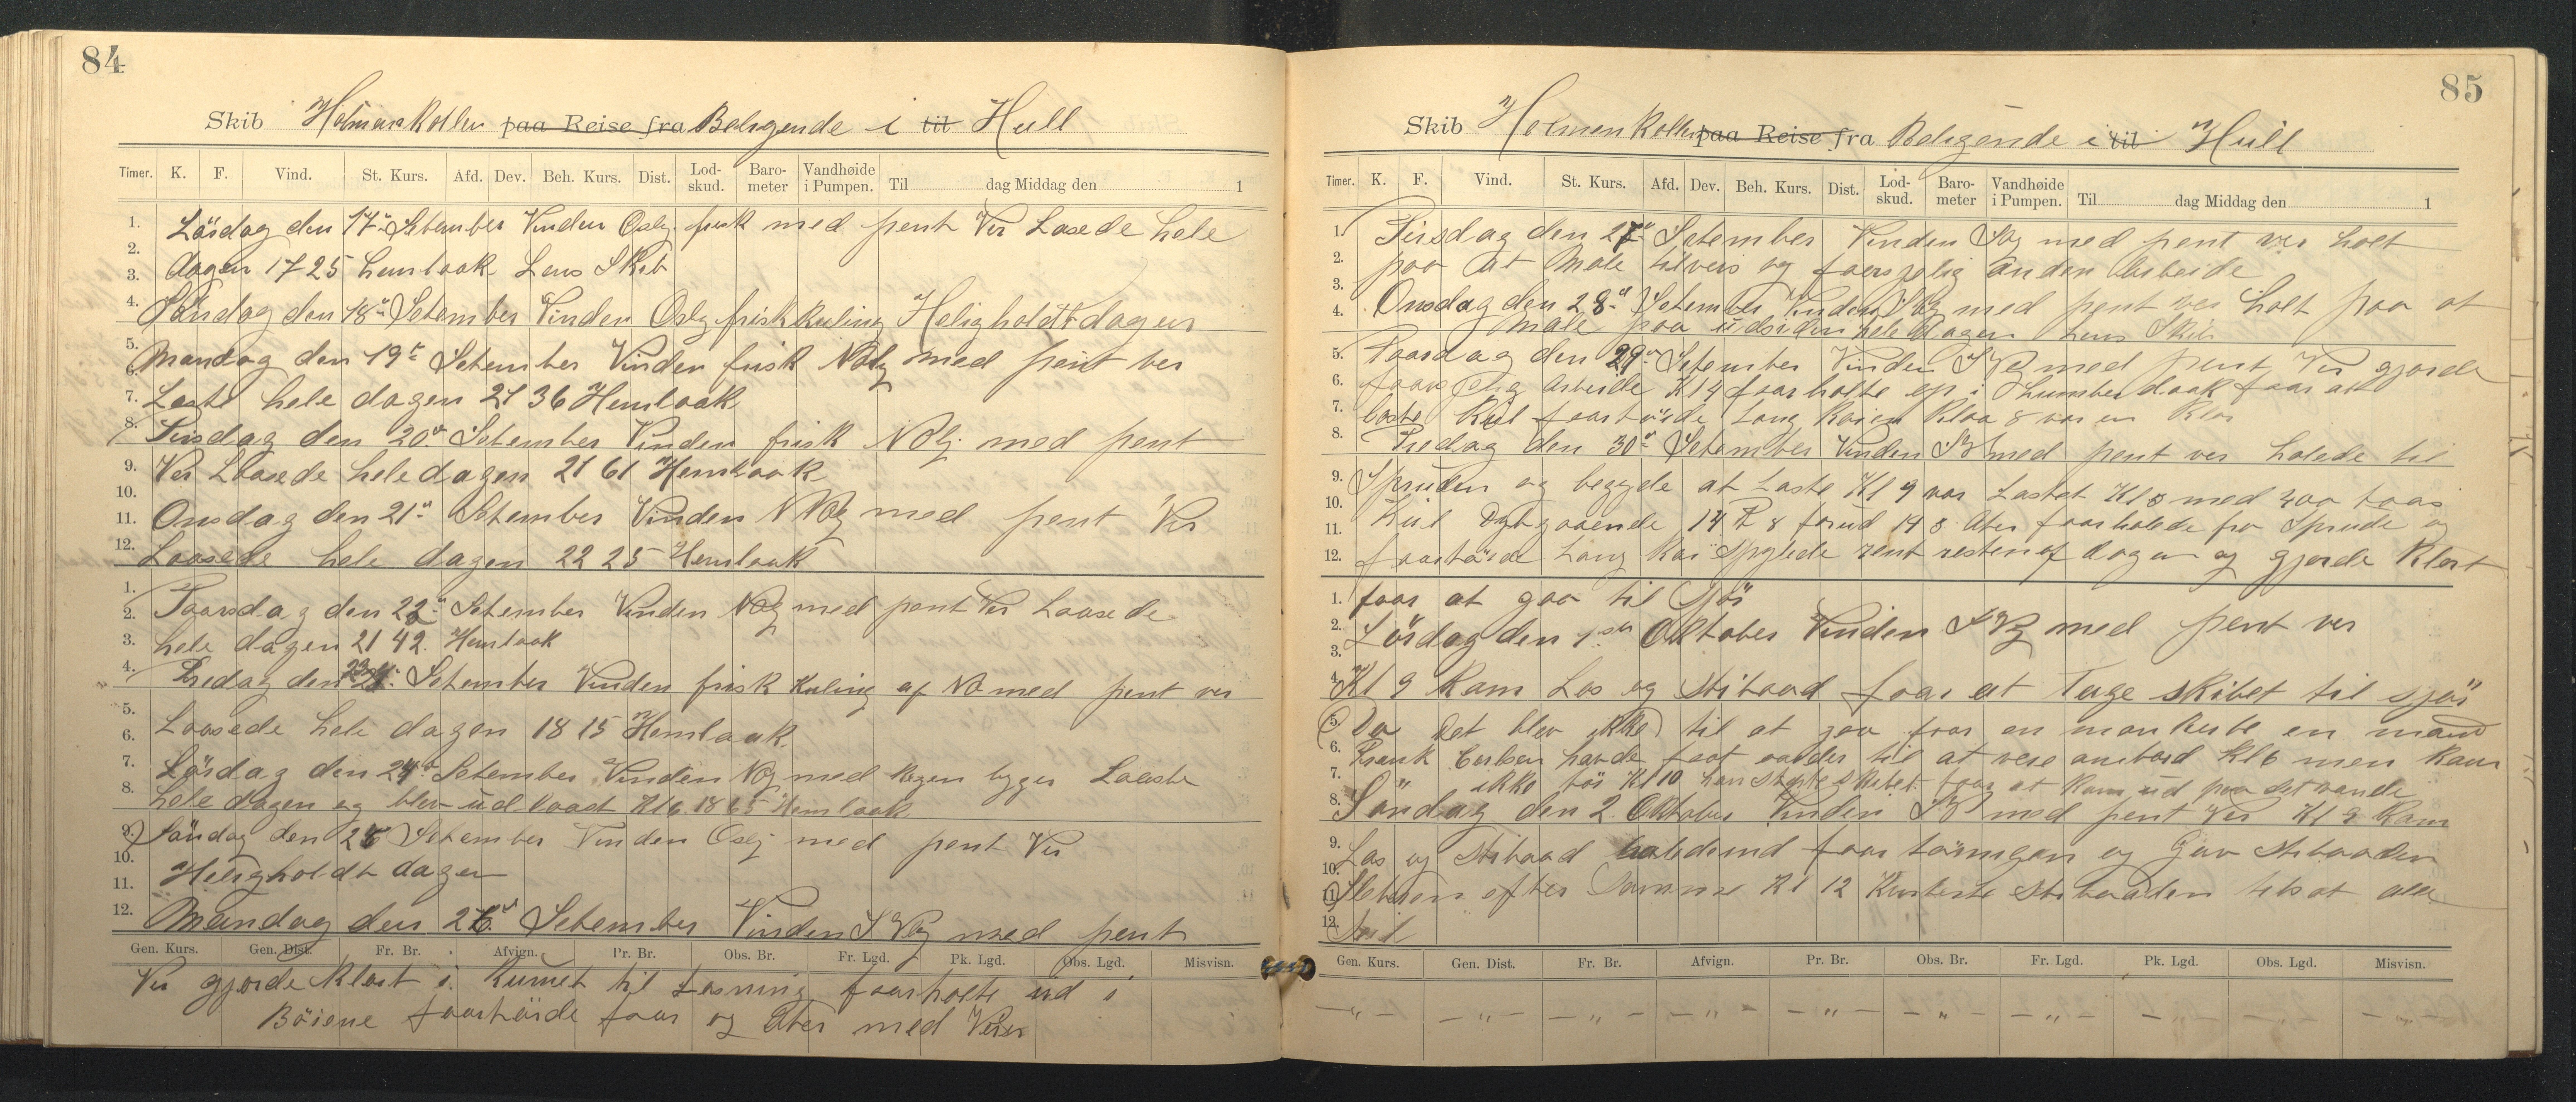 84
Skib Holmenkollen paa Reise fra Beliggende i til Hull
Timer. K. F. Vind. St. Kurs. Afd. Dev. Beh. Kurs. Dist. Lod-skud. Baro-meter Vandhøide i Pumpen. Til dag Middag den 1
1. Lörsdag den 17de Setember Vinden Oslg. frisk med pent Ver Losede hele
2. dagen 1725 Lens Skib
4. Söndag den 18de Setember Vinden Oslg frisk Kuling Heligholdt dagen
5. Mandag den 19de Setember Vinden frisk NOlg med pent ver
7. Laste hele dagen 21 36 Hemlaak
8. Tirsdag den 20de Setember Vinden frisk NOlg. med pent
9. Ver Loosede hele dagen 21 61 Hemlaak
10.
11. Onsdag den 21de Setember Vinden med pent Ver
12. Loosede hele dagen 22 25 Hemlaak
1.
2. Taarsdag den 22de Setember Vinden med pent Ver Laasede
3. hele dagen 21 42. Hemlaak
4. Fredag den 23 Setember Vinden frisk Kuling af NO med pent ver
5.
6. Laasede hele dagen 18 15 Hemlaak
7. Lörsdag den 24de Setember Vinden med Regen byger Laaste
8. hele dagen og blev udlaast Kl 6. 18 65 Hemlaak
9. Söndag den 25 Setember Vinden Oslj med pent Ver
10.
11. Heligholdt dagen
12. Mandag den 26de Setember Vinden med pent
Gen. Kurs. Gen. Dist. Fr. Br. Afvign. Pr. Br. Obs. Br. Fr. Lgd. Pk. Lgd. Obs. Lgd. Misvisn.
Ver gjorde Klart i Rumet til Lasning faarholte ud i
Böiene faartöide faar og Agter med
85
Skib Holmenkollen paa Reise fra Beligende i til Hull
Timer. K. F. Vind. St. Kurs. Afd. Dev. Beh. Kurs. Dist. Lod-skud. Baro-meter Vandhøide i Pumpen. Til dag Middag den 1
1. Tirsdag den 27de Setember Vinden med pent ver holt
2. paa at Male tilveirs og faarsjelig anden Arbeide
3.
4. Onsdag den 28de Setember Vinden med pent ver holt paa at
male paa udsiden hele dagen Lens Skib
5. Taarsdag den 29de Setember Vinden med pent Ver gjorde
6. faarsjelig Arbeide Kl 4 faarholte op i Lumberdaak faar at
7. laste Kul faartöide Lang Kaien Klaa 8 var en Klar
8. Fredag den 30de Setember Vinden med pent ver halede til
9. Spruden og begyde at Laste Kl 9 var Lastet Kl 5 med 400 tons
10.
11. Kul Dybgaaende 14 F 8 forud 14 8 Ater faarhalede fra Sprude og
12. faartöide Lang Kai Spylede rent resten af dagen og gjorde Klart
1. faar at gaa til Sjös
2.
3. Lörsdag den 1ste Oktober Vinden med pent ver
4. Kl 9 Kam Los og Stibaad faar at Tage skibet til sjös
5. Da det blev ikke til at gaa faar en mankerte en mand
6. Frank Carlsen havde faat order til at vere ambord Kl 6 men Kam
7. ikke för Kl 10 han skibet faar at Kam ud paa det vande
8. Söndag den 2. Oktober Vinden med pent Ver Kl 9 Kam
9. Los og Stibaad halede ind faar töiningen og Gav Stibaaden
10.
11. Sleberen efter Samme Kl 12 Kasterte Stibaaden tilsat alle
12. Seil
Gen. Kurs. Gen. Dist. Fr. Br. Afvign. Pr. Br. Obs. Br. Fr. Lgd. Pk. Lgd. Obs. Lgd. Misvisn.